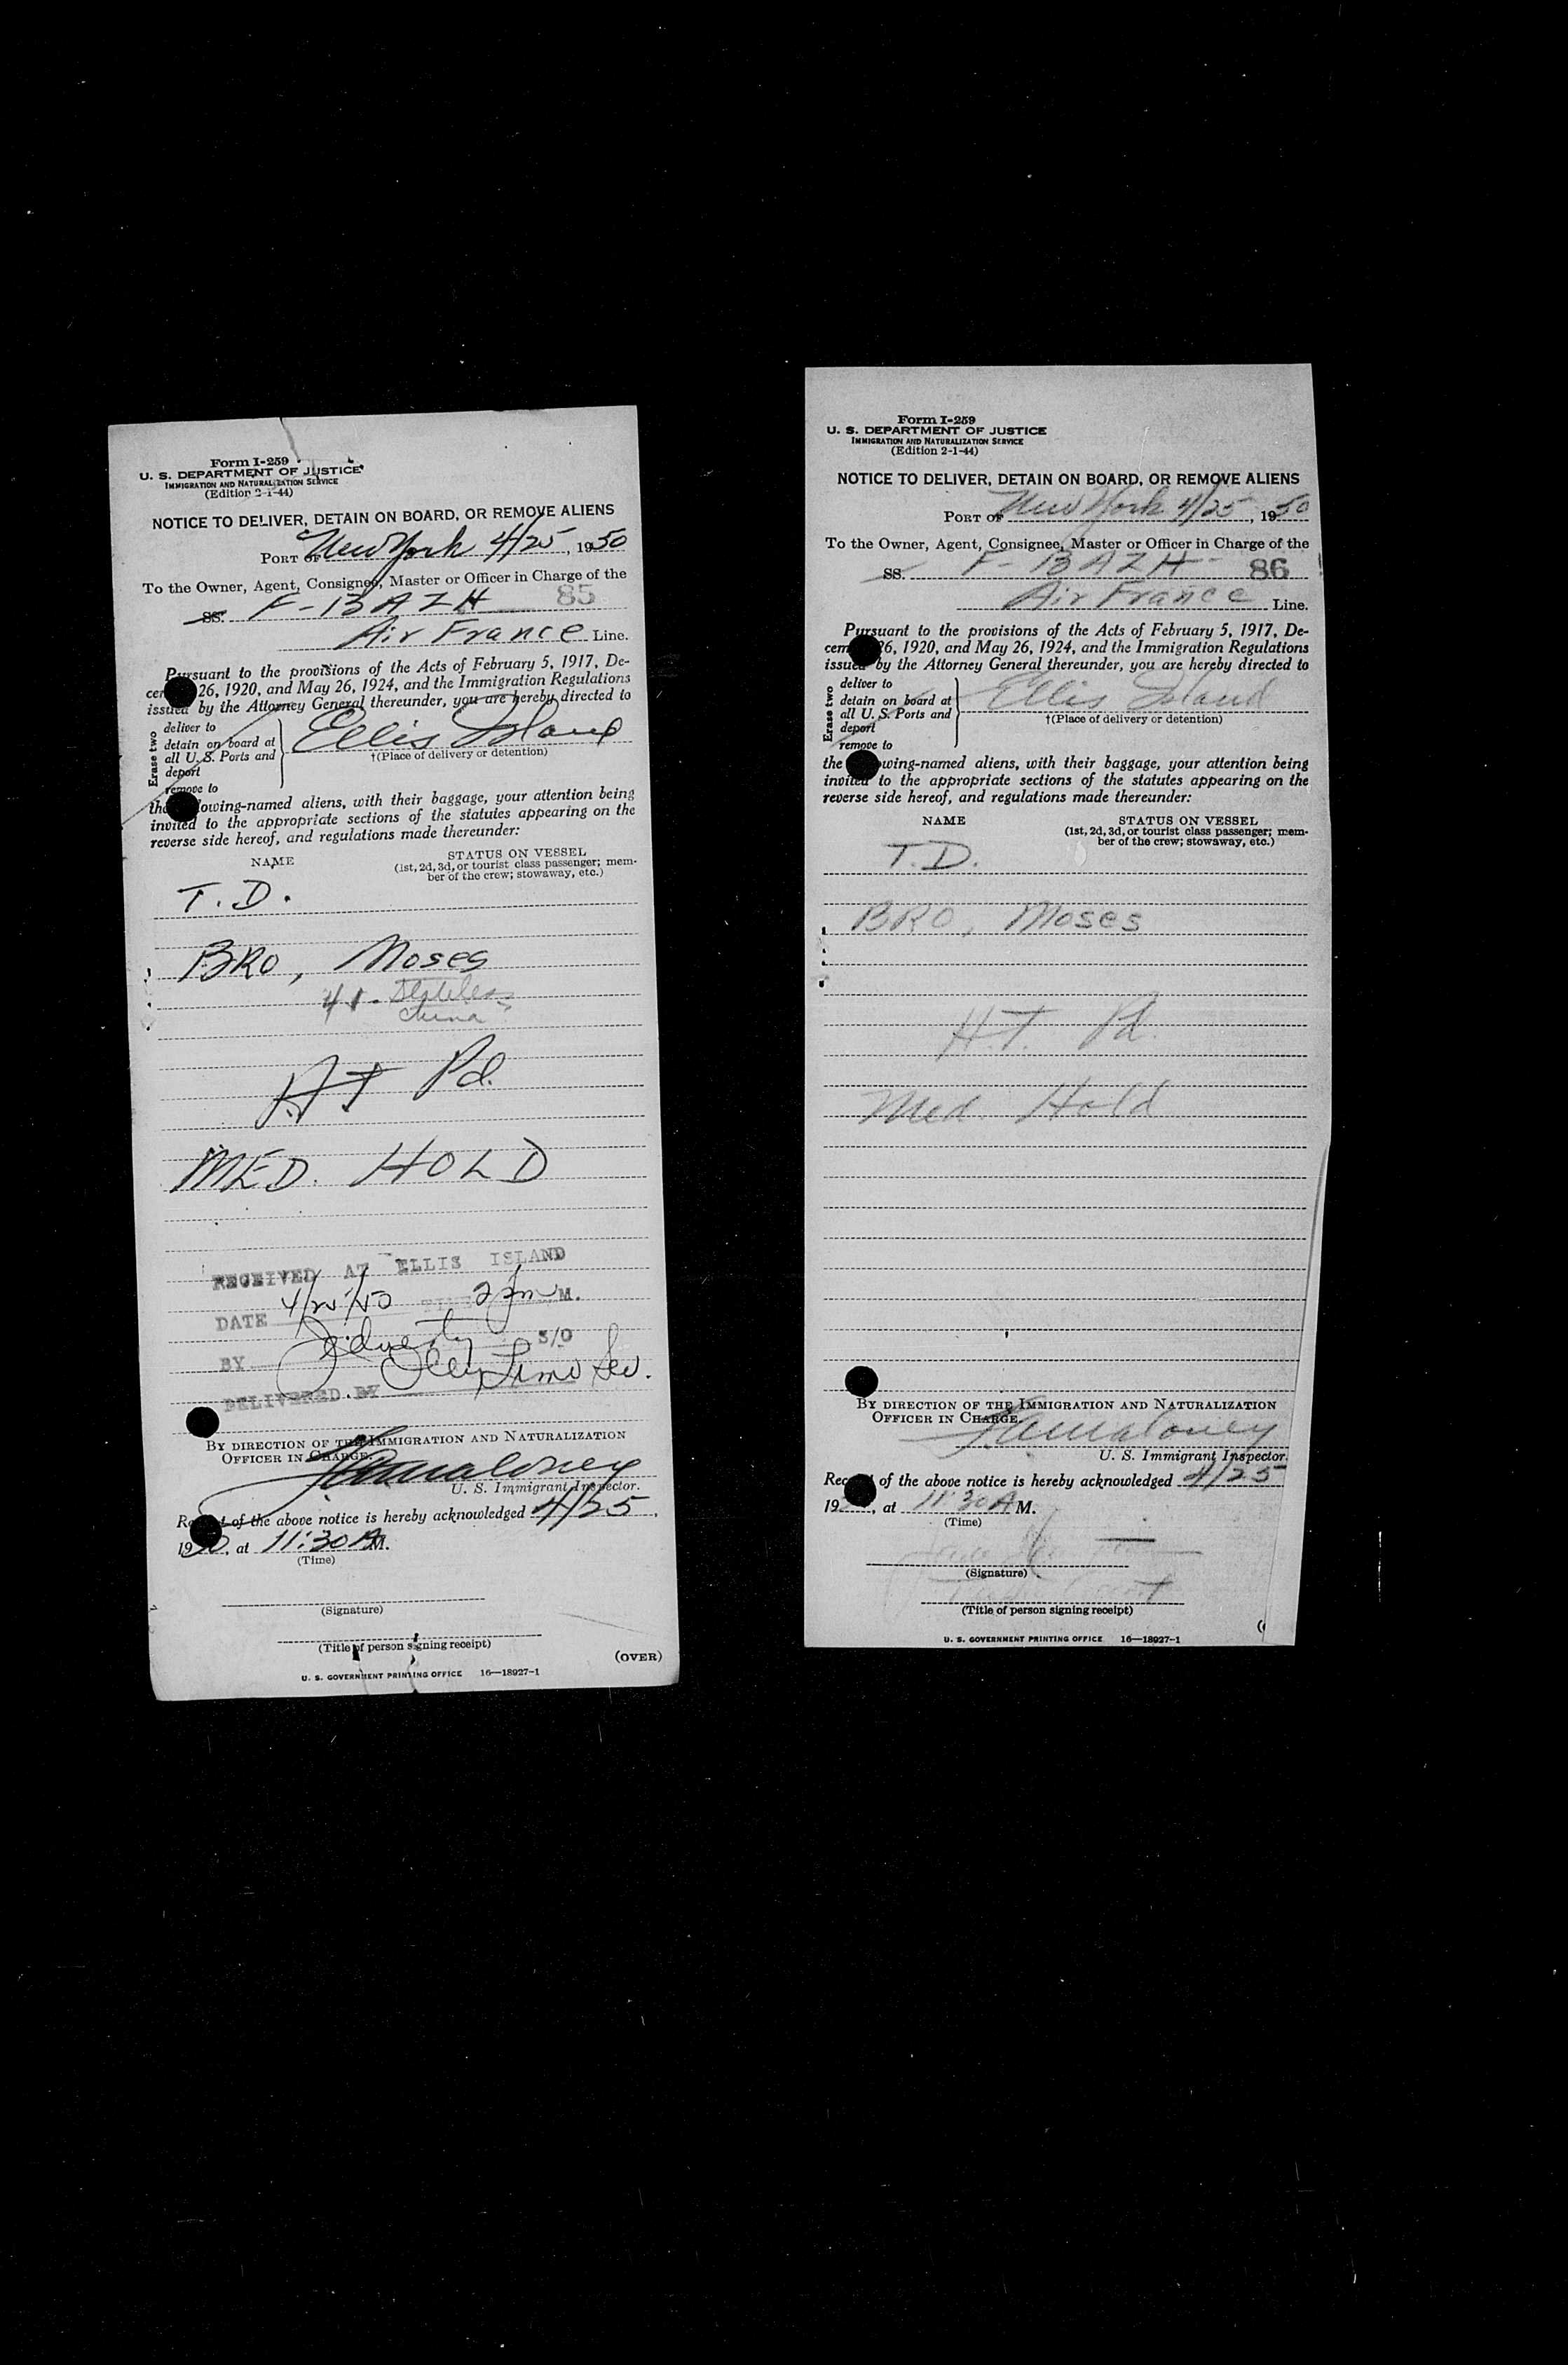 Form I-259
U. S. DEPARTMENT OF JUSTICE
IMMIGRATION AND NATURALIZATION SERVICE
(Edition 2-1-44)
NOTICE TO DELIVER, DETAIN ON BOARD, OR REMOVE ALIENS
PORT OF New York 4/25, 1950
To the Owner, Agent, Consignee, Master or Officer in Charge of the
SS. F-BAZH 85
Air France Line.
Pursuant to the provisions of the Acts of February 5, 1917, De-
cem 26, 1920, and May 26, 1924, and the Immigration Regulations
issued by the Attorney General thereunder, you are hereby directed to
Erase two
deliver to
detain on board at
all U. S. Ports and
deport
remove to
Ellis Island
†(Place of delivery or detention)
the lowing-named aliens, with their baggage, your attention being
invited to the appropriate sections of the statutes appearing on the
reverse side hereof, and regulations made thereunder:
NAME
STATUS ON VESSEL
(1st, 2d, 3d, or tourist class passenger; mem-
ber of the crew; stowaway, etc.)
T.D.
BRO, Moses
41 - Stateless
China
HT Pd.
MED. HOLD
RECEIVED AT ELLIS ISLAND
DATE 4/25/50 TIME 2 pm M.
BY S/O
DELIVERED BY
BY DIRECTION OF THE IMMIGRATION AND NATURALIZATION
OFFICER IN CHARGE.
Maloney
U. S. Immigrant Inspector.
Receipt of the above notice is hereby acknowledged 4/25,
1950, at 11:30 A M.
(Time)
(Signature)
(Title of person signing receipt)
(OVER)
U. S. GOVERNMENT PRINTING OFFICE 16—18927-1
Form I-259
U. S. DEPARTMENT OF JUSTICE
IMMIGRATION AND NATURALIZATION SERVICE
(Edition 2-1-44)
NOTICE TO DELIVER, DETAIN ON BOARD, OR REMOVE ALIENS
PORT OF New York 4/25, 1950
To the Owner, Agent, Consignee, Master or Officer in Charge of the
SS. F-BAZH 86
Air France Line.
Pursuant to the provisions of the Acts of February 5, 1917, De-
cem 26, 1920, and May 26, 1924, and the Immigration Regulations
issued by the Attorney General thereunder, you are hereby directed to
Erase two
deliver to
detain on board at
all U. S. Ports and
deport
remove to
Ellis Island
†(Place of delivery or detention)
the owing-named aliens, with their baggage, your attention being
invited to the appropriate sections of the statutes appearing on the
reverse side hereof, and regulations made thereunder:
NAME
STATUS ON VESSEL
(1st, 2d, 3d, or tourist class passenger; mem-
ber of the crew; stowaway, etc.)
T.D.
BRO, Moses
H.T. Pd.
Med. Hold
BY DIRECTION OF THE IMMIGRATION AND NATURALIZATION
OFFICER IN CHARGE.
Maloney
U. S. Immigrant Inspector.
Receipt of the above notice is hereby acknowledged 4/25
19 , at 11:30 A M.
(Time)
(Signature)
(Title of person signing receipt)
U. S. GOVERNMENT PRINTING OFFICE 16—18927-1